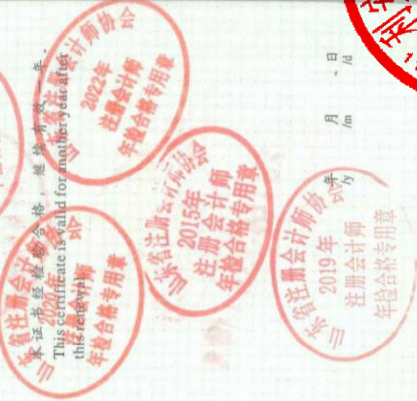 本证书经检验合格，继续有效一年。
This certificate is valid for another year after
this renewal.
山东省注册会计师协会
2022年
注册会计师
年检合格专用章
山东省注册会计师协会
注册会计师
年检合格专用章
山东省注册会计师协会
2015年
注册会计师
年检合格专用章
山东省注册会计师协会
2019年
注册会计师
年检合格专用章
年 月 日
/y /m /d
利